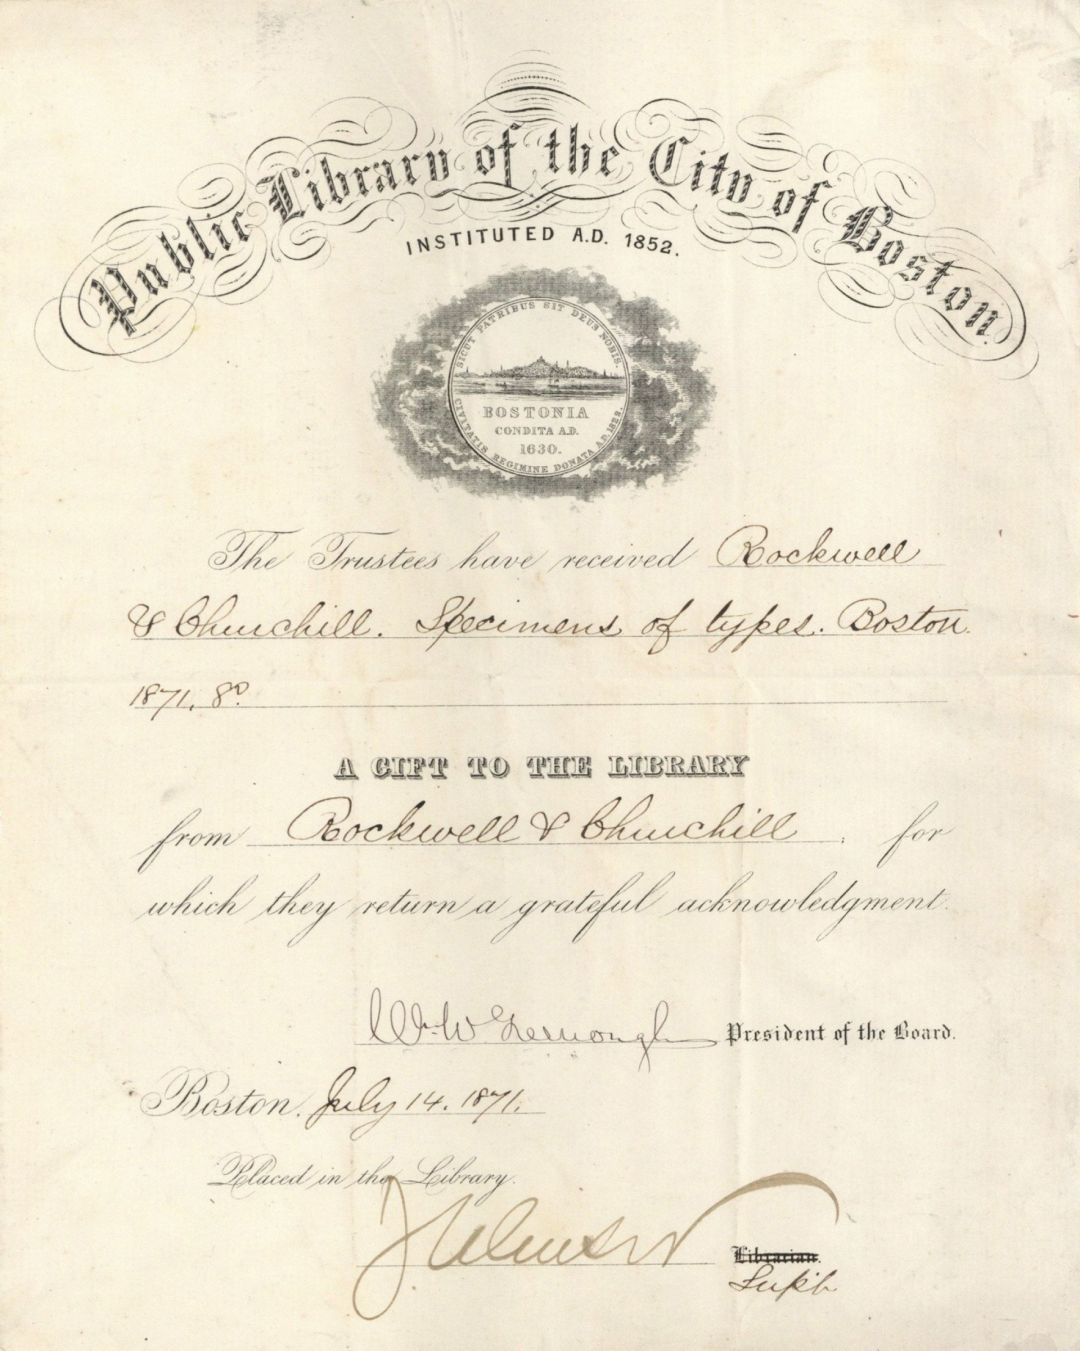 Public Library of the City of Boston.
INSTITUTED A.D. 1852.
SICUT PATRIBUS SIT DEUS NOBIS.
BOSTONIA
CONDITA A.D.
1630.
CIVITATIS REGIMINE DONATA A.D. 1822.
The Trustees have received Rockwell
& Churchill. Specimens of types. Boston.
1871. 8º.
A GIFT TO THE LIBRARY
from Rockwell & Churchill. for
which they return a grateful acknowledgment.
Wm W Greenough President of the Board.
Boston. July 14. 1871.
Placed in the Library.
J Winsor Librarian.
Supt.